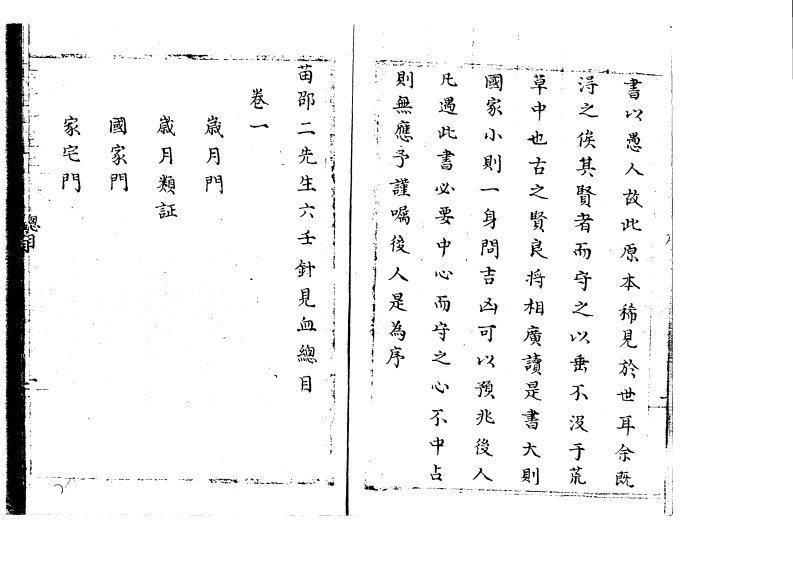 書以愚人故此原本稀見於世耳余既
淂之俟其賢者而守之以垂不沒于荒
草中也古之賢良將相廣讀是書大則
國家小則一身問吉凶可以預兆後人
凢遇此書必要中心而守之心不中占
則無應予謹囑後人是為序
苗邵二先生六壬針見血總目
卷一
嵗月門
嵗月類証
國家門
家宅門
總目